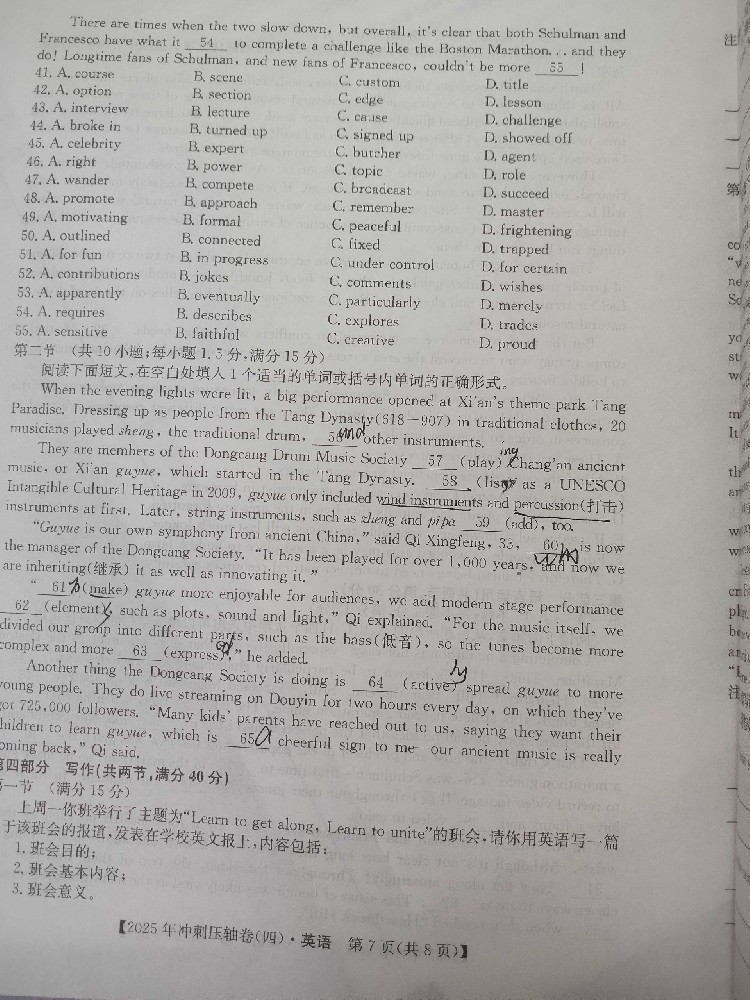 There are times when the two slow down, but overall, it's clear that both Schulman and
Francesco have what it 54 to complete a challenge like the Boston Marathon... and they
do! Longtime fans of Schulman, and new fans of Francesco, couldn't be more 55 !
41. A. course B. scene C. custom D. title
42. A. option B. section C. edge D. lesson
43. A. interview B. lecture C. cause D. challenge
44. A. broke in B. turned up C. signed up D. showed off
45. A. celebrity B. expert C. butcher D. agent
46. A. right B. power C. topic D. role
47. A. wander B. compete C. broadcast D. succeed
48. A. promote B. approach C. remember D. master
49. A. motivating B. formal C. peaceful D. frightening
50. A. outlined B. connected C. fixed D. trapped
51. A. for fun B. in progress C. under control D. for certain
52. A. contributions B. jokes C. comments D. wishes
53. A. apparently B. eventually C. particularly D. merely
54. A. requires B. describes C. explores D. trades
55. A. sensitive B. faithful C. creative D. proud
第二节 (共10小题;每小题1.5分,满分15分)
阅读下面短文,在空白处填入1个适当的单词或括号内单词的正确形式。
When the evening lights were lit, a big performance opened at Xi'an's theme park Tang
Paradise. Dressing up as people from the Tang Dynasty(618—907) in traditional clothes, 20
musicians played sheng, the traditional drum, 56 and other instruments.
They are members of the Dongcang Drum Music Society 57 (play) ing Chang'an ancient
music, or Xi'an guyue, which started in the Tang Dynasty. 58 (list) as a UNESCO
Intangible Cultural Heritage in 2009, guyue only included wind instruments and percussion(打击)
instruments at first. Later, string instruments, such as zheng and pipa 59 (add), too.
"Guyue is our own symphony from ancient China," said Qi Xingfeng, 33, 60 is now
the manager of the Dongcang Society. "It has been played for over 1,000 years, and now we
are inheriting(继承) it as well as innovating it."
" 61 to (make) guyue more enjoyable for audiences, we add modern stage performance
62 (element)s, such as plots, sound and light," Qi explained. "For the music itself, we
divided our group into different parts, such as the bass(低音), so the tunes become more
complex and more 63 (express)," he added.
Another thing the Dongcang Society is doing is 64 (active) ly spread guyue to more
young people. They do live streaming on Douyin for two hours every day, on which they've
got 725,000 followers. "Many kids' parents have reached out to us, saying they want their
hildren to learn guyue, which is 65 a cheerful sign to me- our ancient music is really
oming back," Qi said.
第四部分 写作(共两节,满分40分)
第一节 (满分15分)
上周一你班举行了主题为"Learn to get along, Learn to unite"的班会,请你用英语写一篇
于该班会的报道,发表在学校英文报上,内容包括:
1. 班会目的;
2. 班会基本内容;
3. 班会意义。
【2025年冲刺压轴卷(四)·英语 第7页(共8页)】
注
第
co
ne
yo
st
w
m
It
th
an
w
注